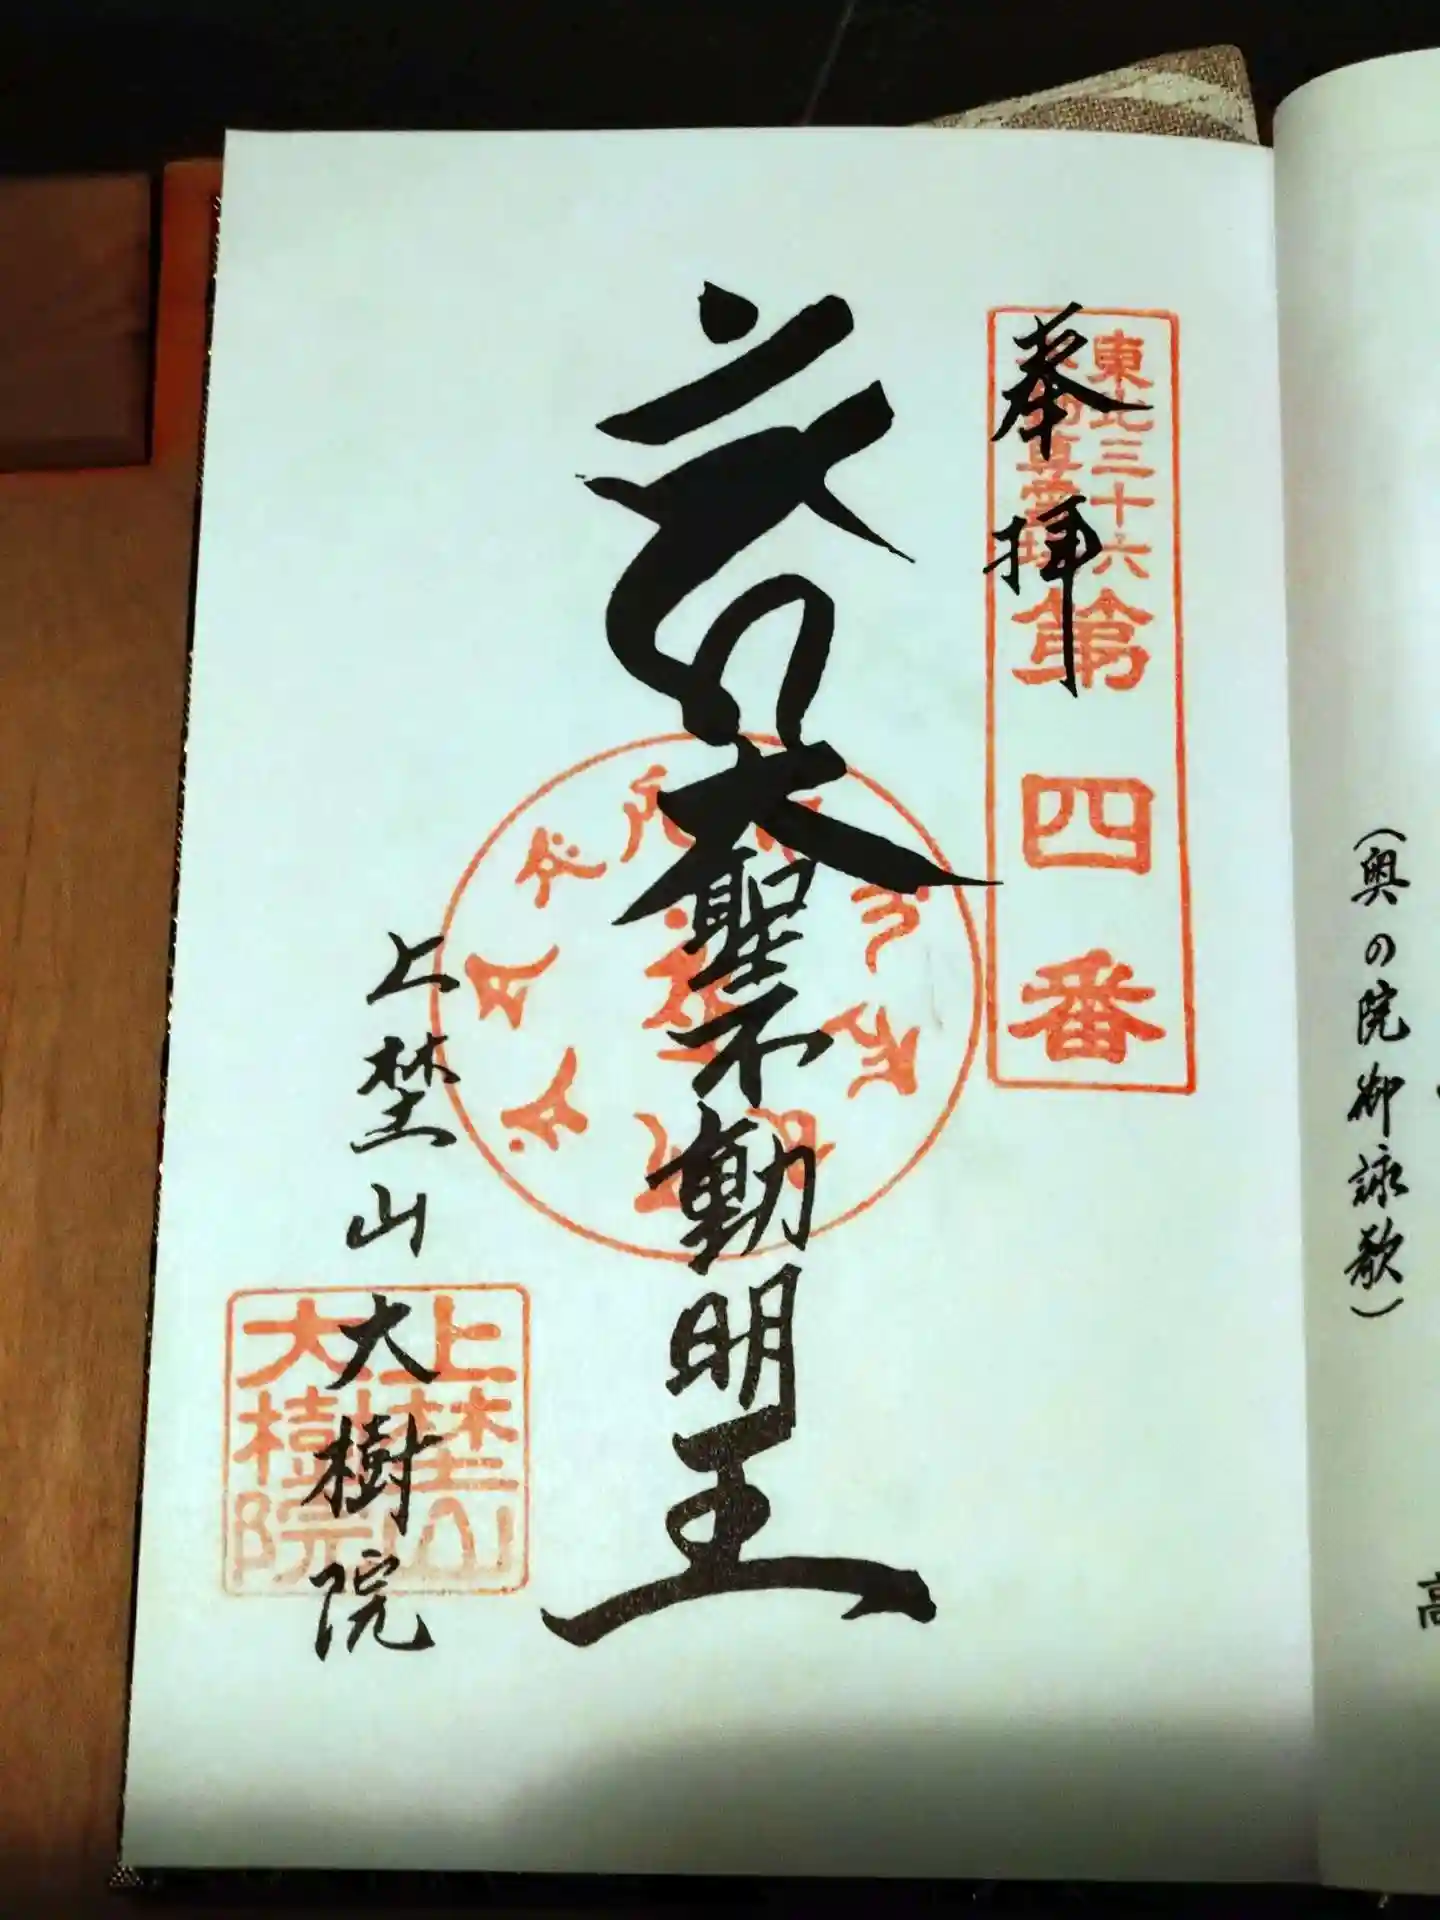 (奥の院御詠歌)
高
奉拝
東北三十六
不動尊霊場
第四番
大聖不動明王
上埜山
大樹院
上埜山
大樹院